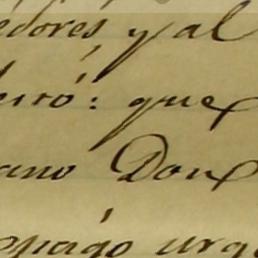 edores y al
eiró: que
ano Don
opagó urg